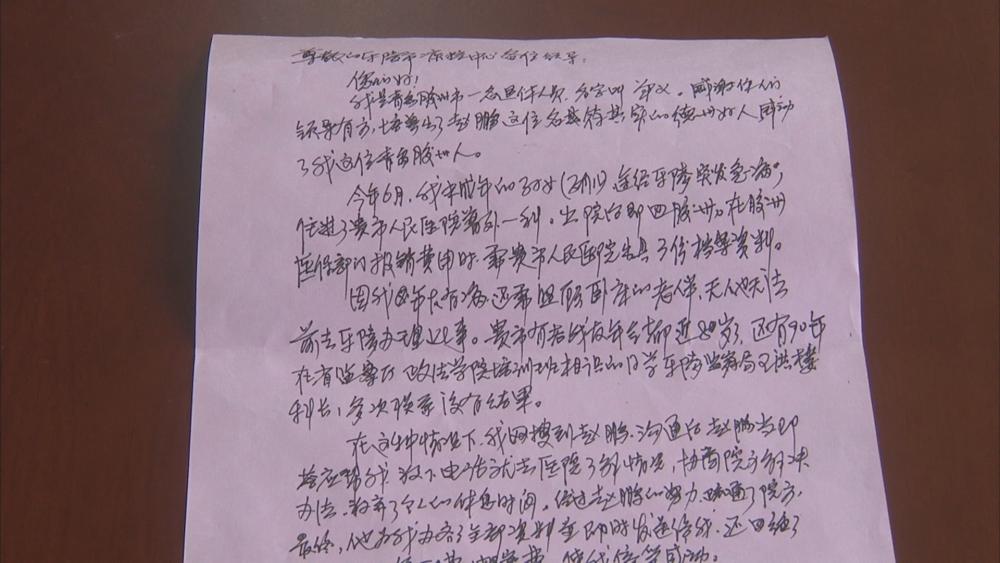 尊敬的乐陵市疾控中心各位领导:
您们好!
我是青岛胶州市一名退休人员,名字叫 。感谢你们
领导有方,培养出了赵鹏这位名县符其实的德州好人感动
了我这位青岛胶州人。
今年6月,我未成年的子女(2个)途经乐陵突发急病,
住进了贵市人民医院 外一科。出院后即回胶州。在胶州
医保部门报销费用时需贵市人民医院出具了份 资料。
因我因年 有病,还需 卧床的老伴,无人也无法
前去乐陵办理此事。贵市有老战友年令都近80岁,还有90年
在省监 政法学院培训班相识的同学乐陵监察局王洪楼
科长,多次联系没有结果。
在这种情况下,我网搜到赵鹏,沟通后赵鹏当即
答应帮我 放下电话就去医院了解情况,协商院方解决
办法。放弃了个人的休息时间,经过赵鹏的努力,疏通了院方,
最终,他为我办齐了全部资料并即时发送给我。还回绝了
使我倍受感动。